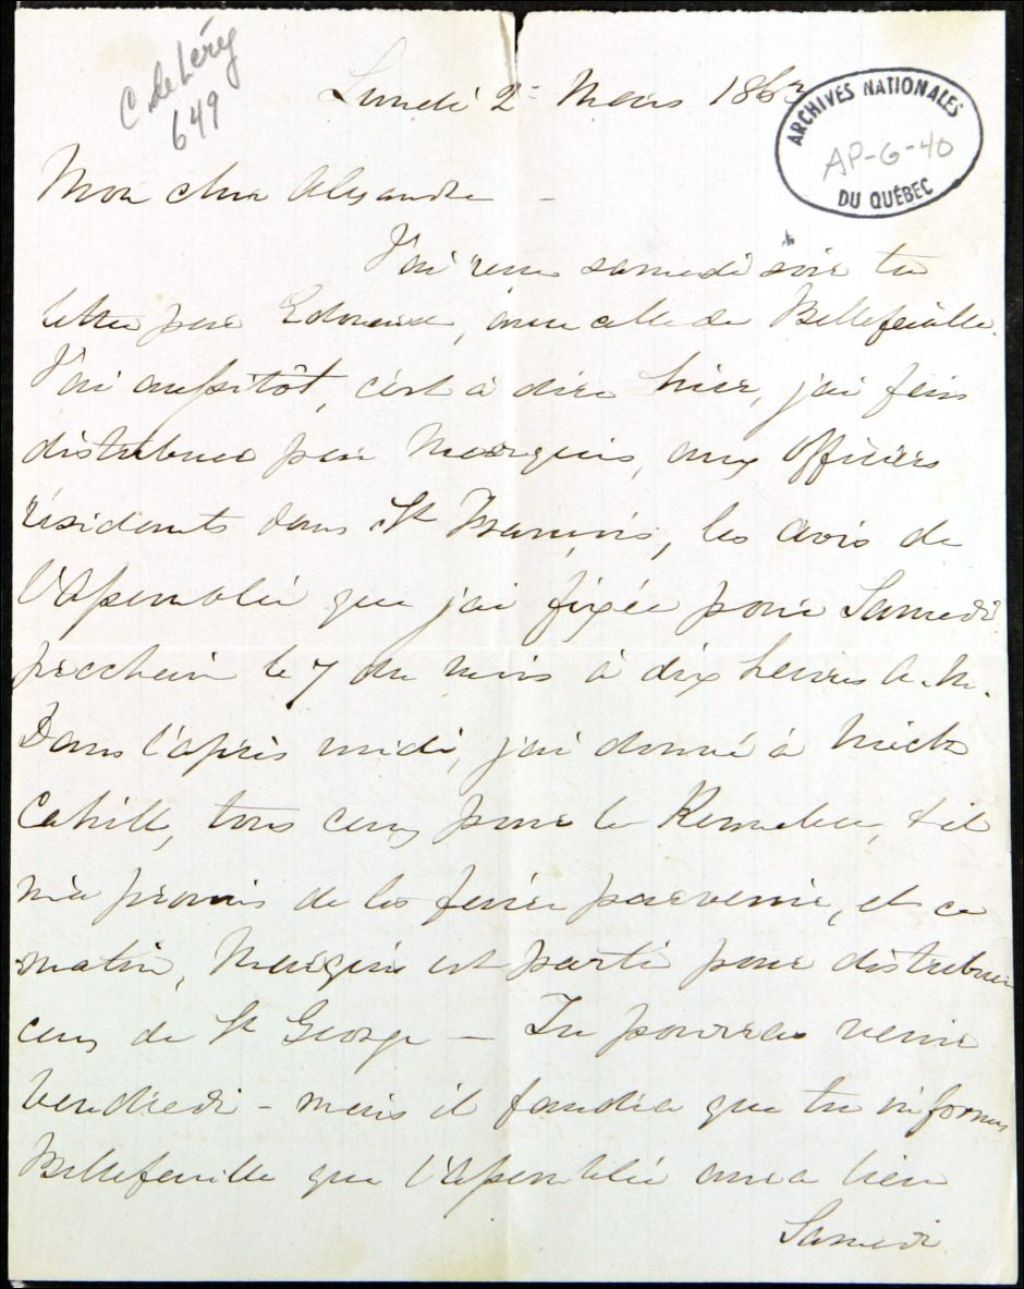 C. de Léry
649
Lundi 2 Mars 1863
ARCHIVES NATIONALES
AP-G-40
DU QUÉBEC
Mon cher Alexandre -
J'ai reçu samedi soir ta
lettre par Edouard, avec celle de Bellefeuille.
J'ai aussitôt, c'est à dire hier, j'ai fais
distribuer par Marquis, aux Officiers
résidents dans St François, les avis de
l'Assemblée que j'ai fixée pour Samedi
prochain le 7 du mois à dix heures A.M.
Dans l'après midi, j'ai donné à Mick
Cahill, tous ceux pour le & il
m'a promis de les faire parvenir, et ce
matin, Marquis est parti pour distribuer
ceux de St George — Tu pourras venir
Vendredi - mais il faudra que tu informes
Bellefeuille que l'Assemblée aura lieu
Samedi